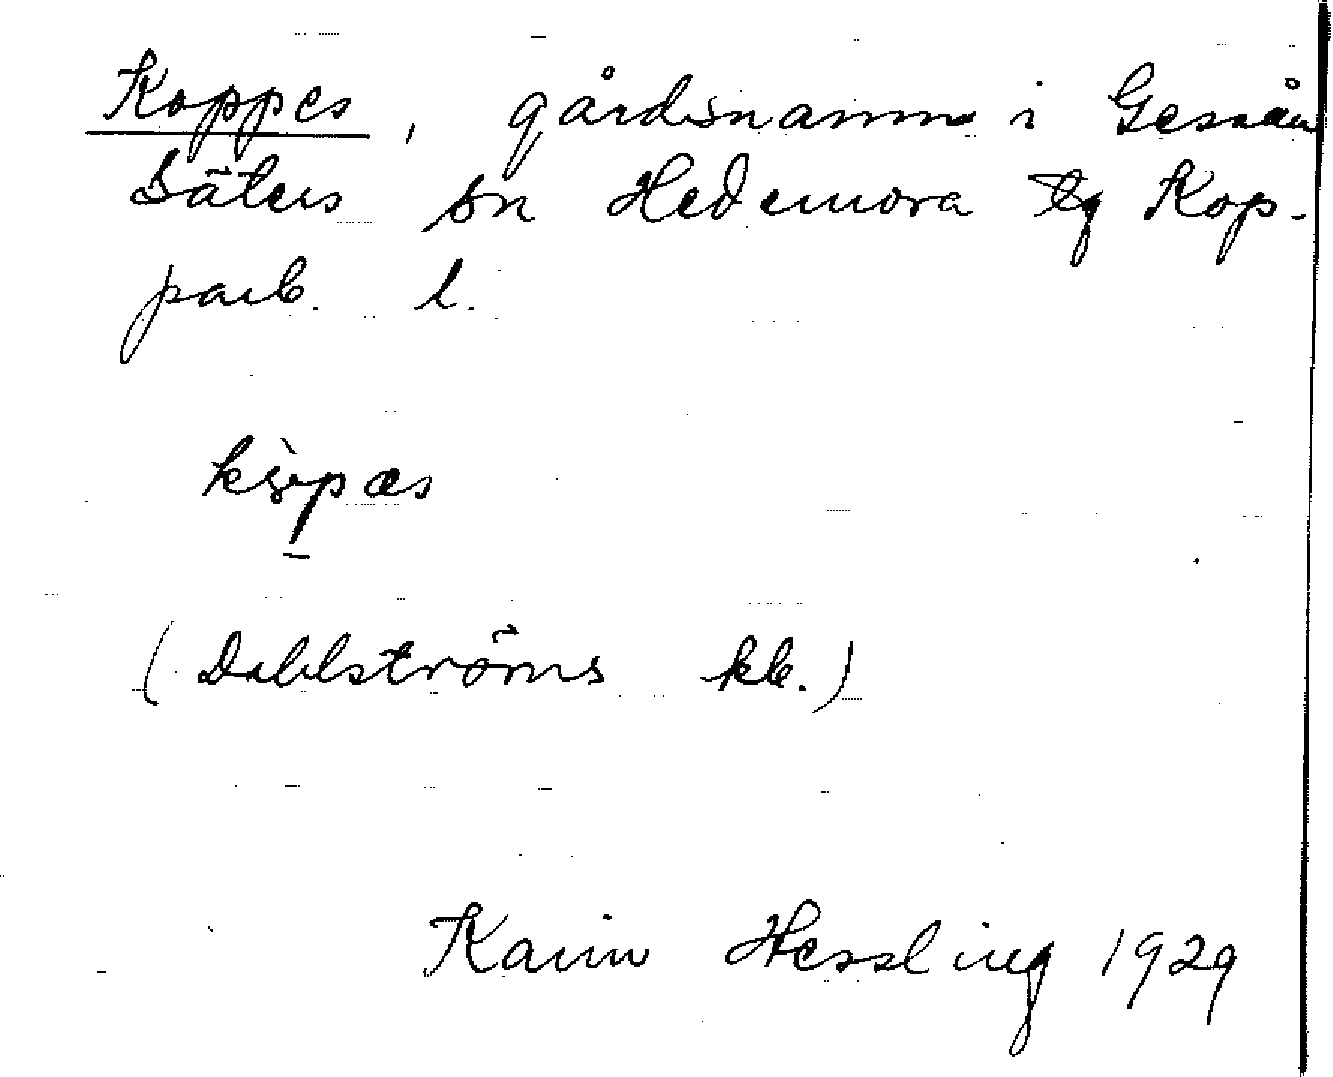 Koppes, gårdsnamn i Gessån
Säters sn Hedemora tg Kop-
parb. l.
(Dahlströms kb.)
Karin Hessling 1929